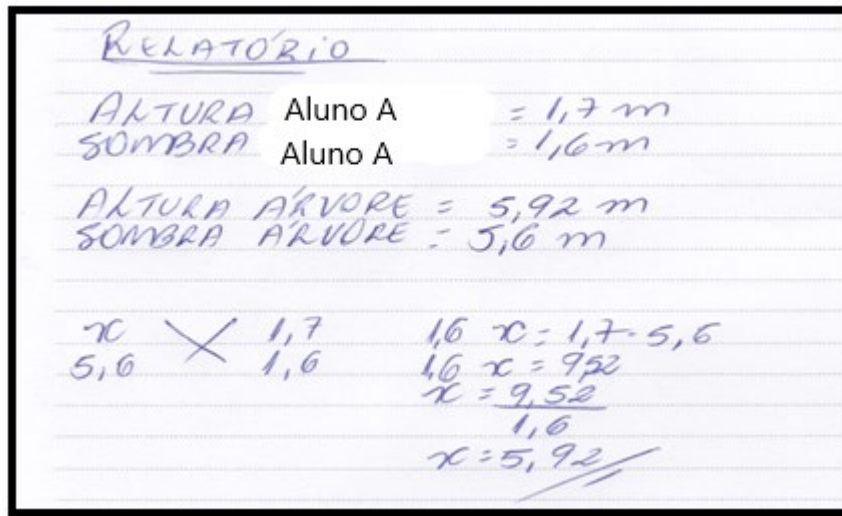 RELATÓRIO
ALTURA Aluno A = 1,7 m
SOMBRA Aluno A = 1,6 m
ALTURA ÁRVORE = 5,92 m
SOMBRA ÁRVORE = 5,6 m
x 1,7 1,6 x = 1,7 . 5,6
5,6 1,6 1,6 x = 9,52
x = 9,52
1,6
x = 5,92